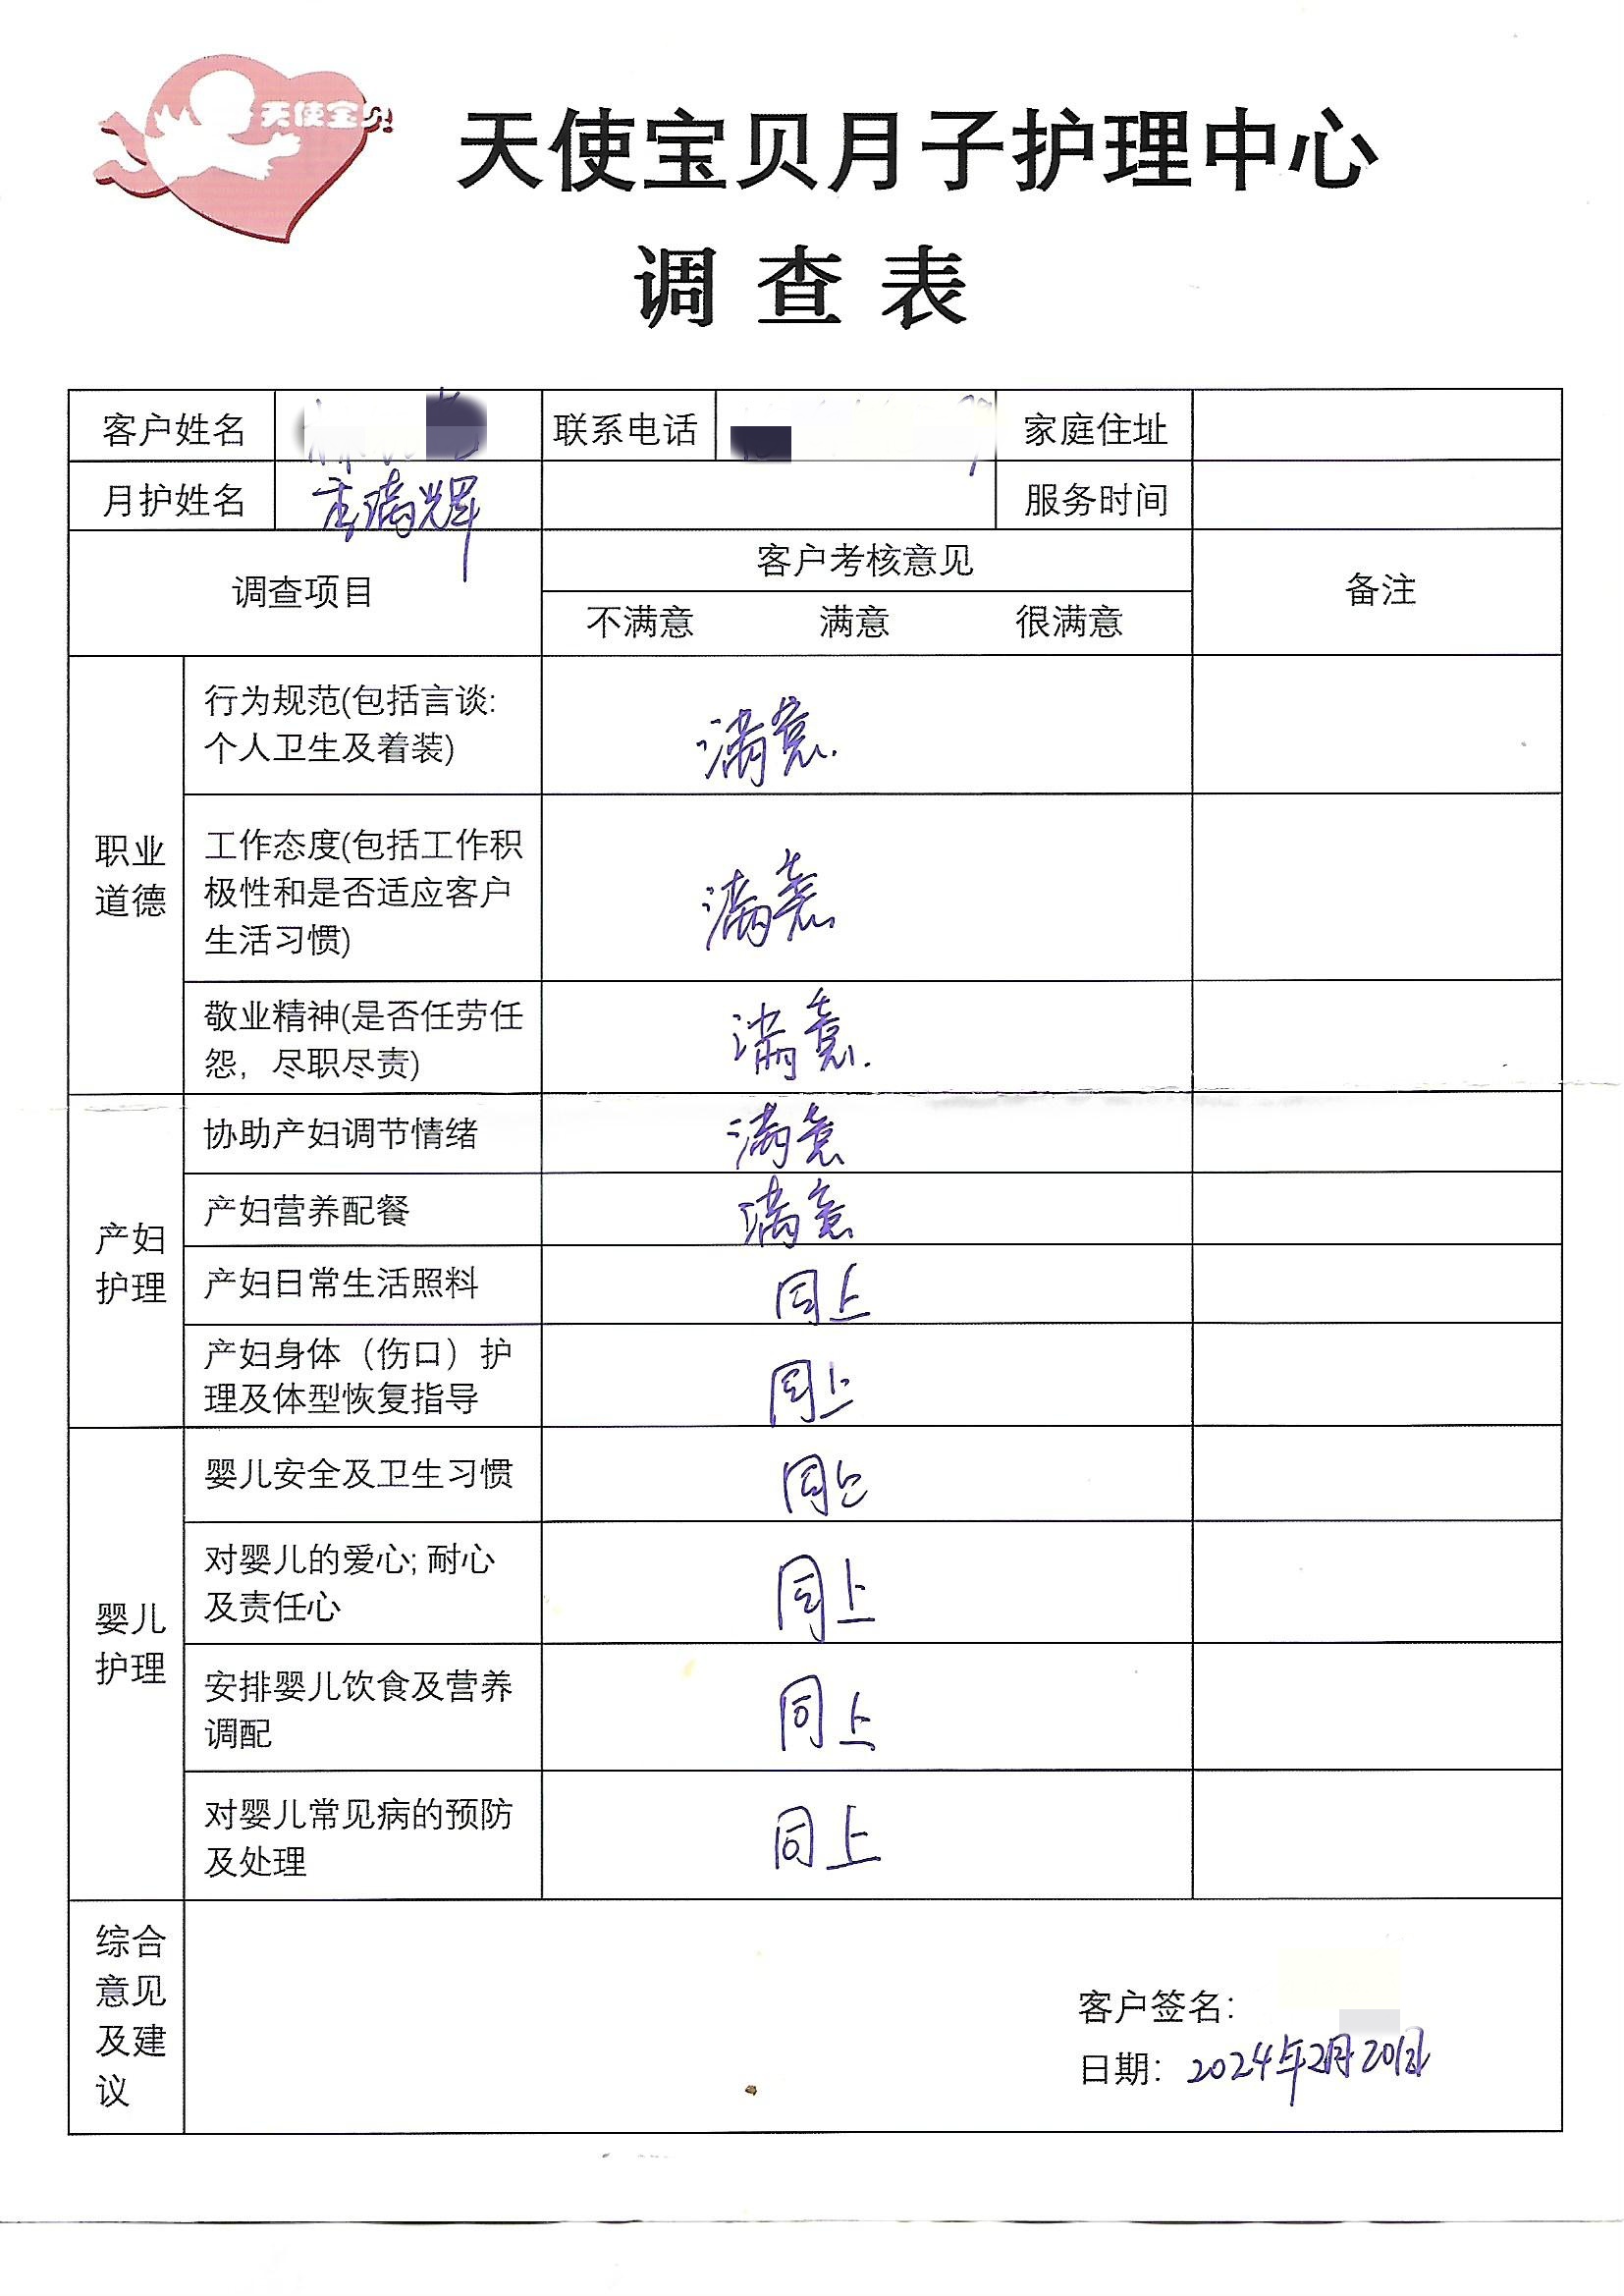 天使宝贝
天使宝贝月子护理中心
调查表
客户姓名 联系电话 家庭住址
月护姓名 瑞辉 服务时间
调查项目 客户考核意见 备注
不满意 满意 很满意
职业
道德
行为规范(包括言谈:
个人卫生及着装)
满意.
工作态度(包括工作积
极性和是否适应客户
生活习惯)
满意
敬业精神(是否任劳任
怨，尽职尽责)
满意.
产妇
护理
协助产妇调节情绪 满意
产妇营养配餐 满意
产妇日常生活照料 同上
产妇身体（伤口）护
理及体型恢复指导
同上
婴儿
护理
婴儿安全及卫生习惯 同上
对婴儿的爱心; 耐心
及责任心
同上
安排婴儿饮食及营养
调配
同上
对婴儿常见病的预防
及处理
同上
综合
意见
及建
议
客户签名:
日期: 2024年2月20日